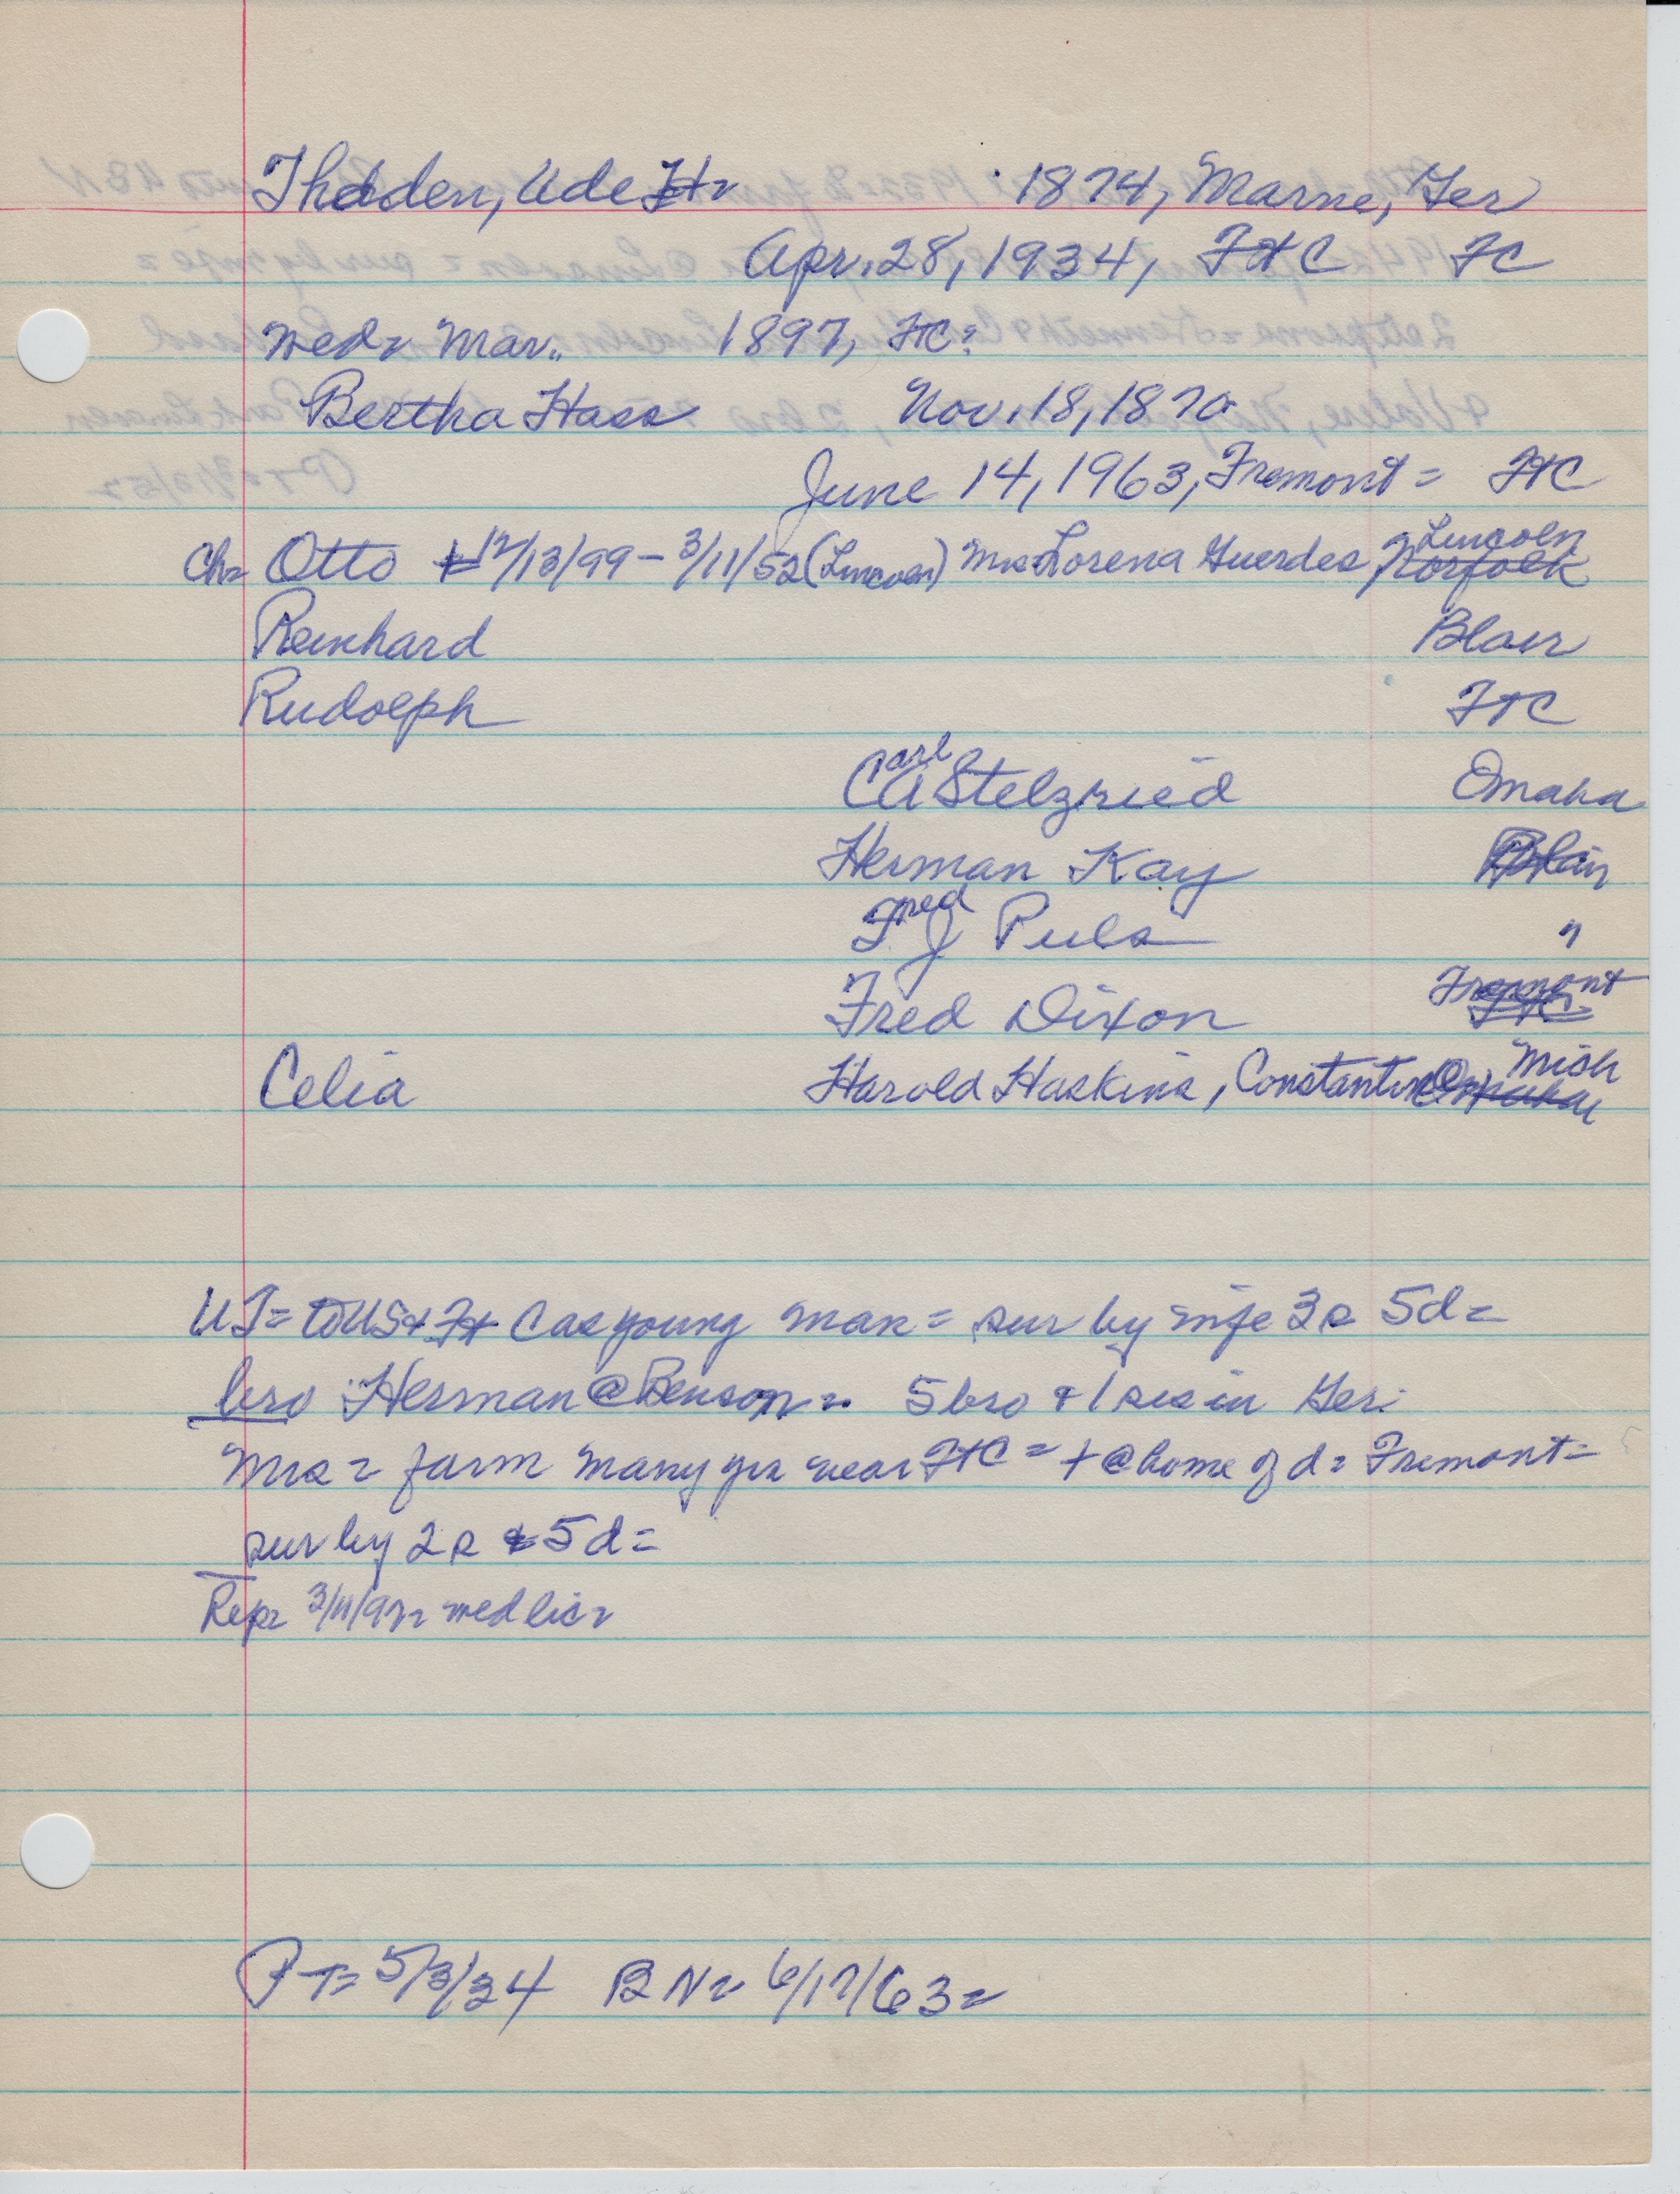 Thoden, Ude 1874, Marne, Ger
Apr. 28, 1934, Ft C FC
wed= Mar. 1897, FtC=
Bertha Hass Nov. 18, 1870
June 14, 1963, Fremont = FtC
Ch= Otto 12/13/99 – 3/11/52 (Lincoln) Mrs Lorena Guerdes, Lincoln Norfolk
Reinhard Blair
Rudolph FtC
Carl A Stelzried Omaha
Herman Kay Blair
Fred J Puls "
Fred Dixon Fremont
Celia Harold Haskins, Constantine, Mich Omaha
UT= to US & Ft C as young man = sur by wife 3s 5d=
bro Herman @ Benson = 5 bro & 1 sis in Ger.
Mrs = farm many yrs near FtC = + @ home of d = Fremont =
sur by 2s & 5d=
Rep= 3/11/97= wed lic=
PT= 5/3/34 BN= 6/17/63=